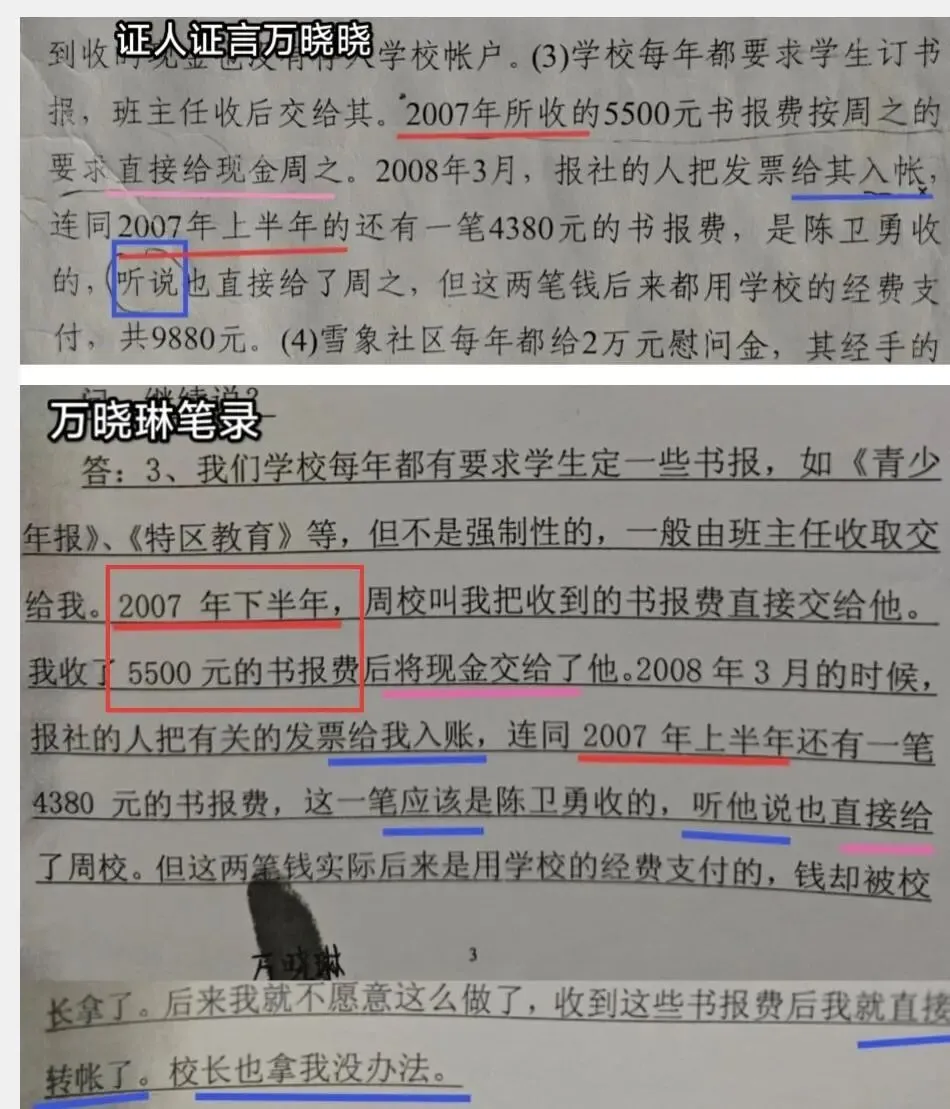 证人证言万晓晓
到收 现金也没有存入学校帐户。(3)学校每年都要求学生订书
报，班主任收后交给其。2007年所收的5500元书报费按周之的
要求直接给现金周之。2008年3月，报社的人把发票给其入帐，
连同2007年上半年的还有一笔4380元的书报费，是陈卫勇收
的，听说也直接给了周之，但这两笔钱后来都用学校的经费支
付，共9880元。(4)雪象社区每年都给2万元慰问金，其经手的
万晓琳笔录
答：3、我们学校每年都有要求学生定一些书报，如《青少
年报》、《特区教育》等，但不是强制性的，一般由班主任收取交
给我。2007 年下半年，周校叫我把收到的书报费直接交给他。
我收了 5500 元的书报费后将现金交给了他。2008 年 3 月的时候，
报社的人把有关的发票给我入账，连同 2007 年上半年还有一笔
4380 元的书报费，这一笔应该是陈卫勇收的，听他说也直接给
了周校。但这两笔钱实际后来是用学校的经费支付的，钱却被校
万晓琳
3
长拿了。后来我就不愿意这么做了，收到这些书报费后我就直接
转帐了。校长也拿我没办法。